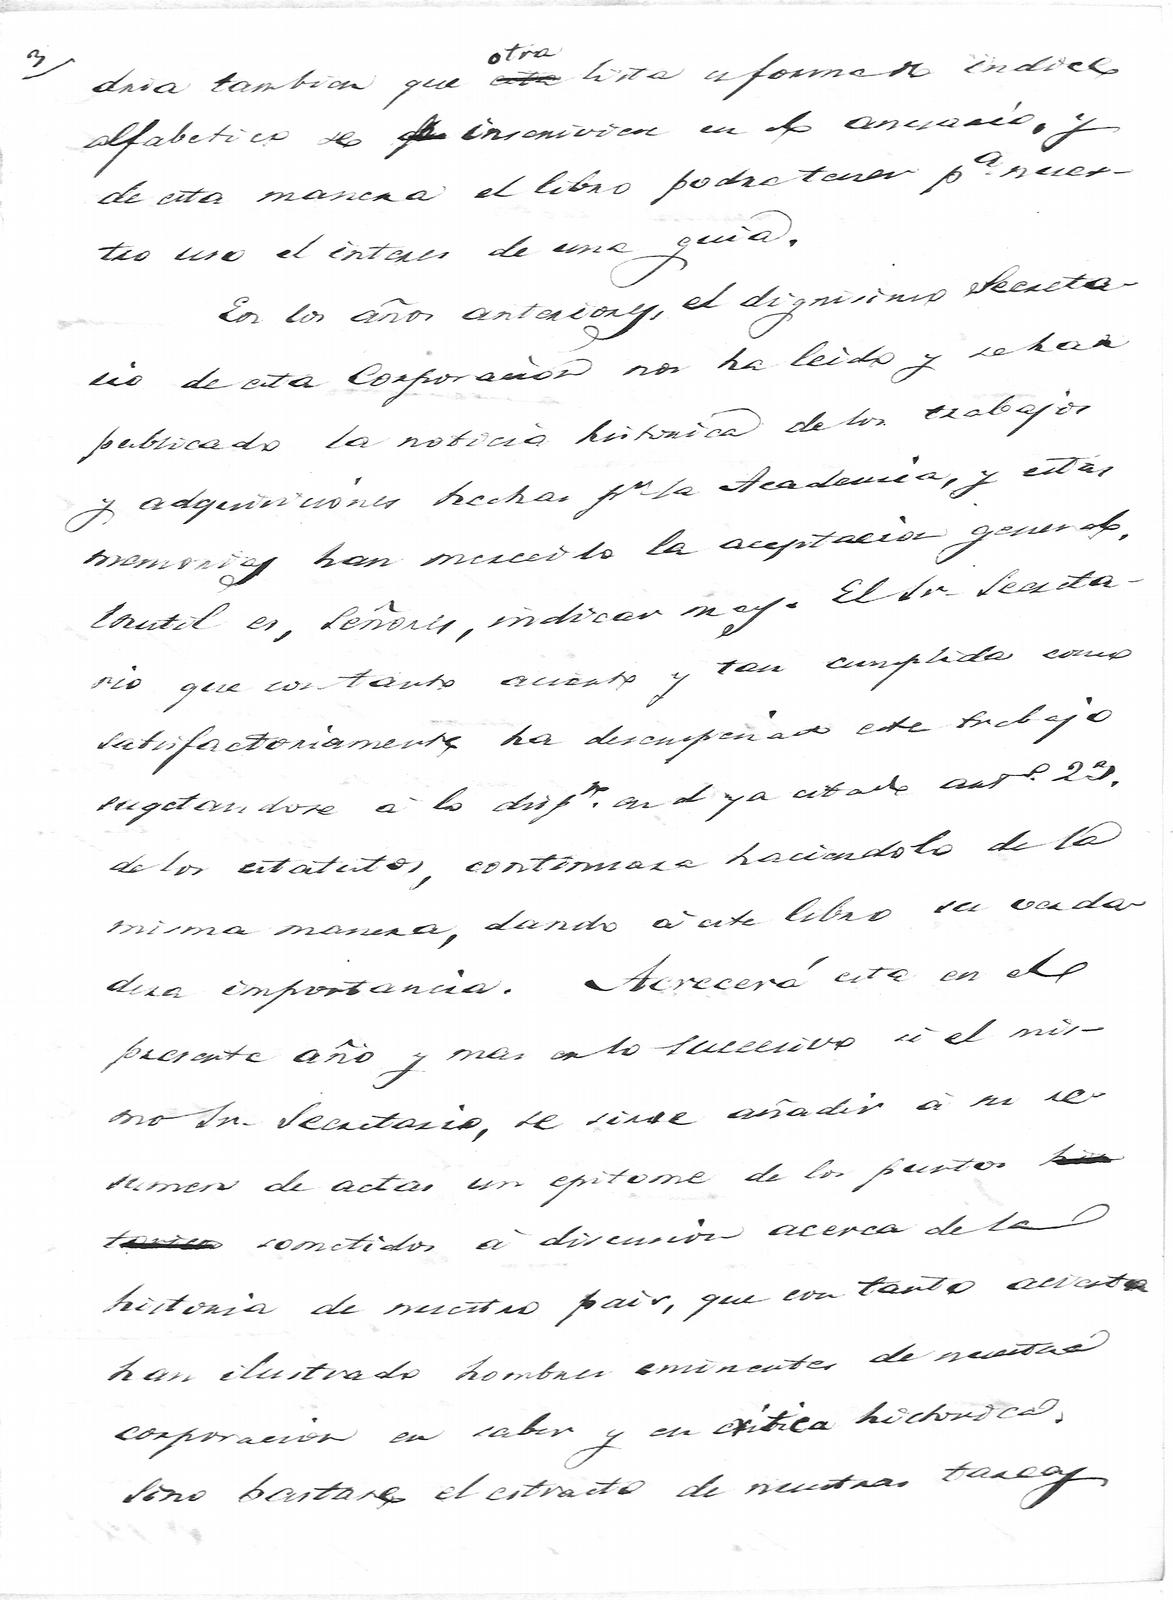 3/
dria tambien que otra esta lista en forma de indice
alfabetico se inscriviese en el anuario, y
de esta manera el libro podra tener pª. nues-
tro uso el interes de una guia.
En los años anteriores, el dignisimo Secreta-
rio de esta Corporacion nos ha leido y se han
publicado la noticia historica de los trabajos
y adquisiciones hechas pr. la Academia, y estas
memorias han merecido la aceptacion general.
Inutil es, Señores, indicar mas. El Sr. Secreta-
rio que con tanto acierto y tan cumplida como
satisfactoriamente ha desempeñado este trabajo
sugetandose á lo disp.to en el ya citado artº. 23.
de los estatutos, continuara haciendolo de la
misma manera, dando á este libro su verda-
dera importancia. Acrecerá esta en el
presente año y mas en lo succesivo si el mis-
mo Sr. Secretario, se sirve añadir á su re-
sumen de actas un epitome de los puntos his
toricos sometidos á discusion acerca de la
historia de nuestro pais, que con tanto acierto
han ilustrado hombres eminentes de nuestra
corporacion en saber y en critica historica.
Sino bastare el estracto de nuestras tareas